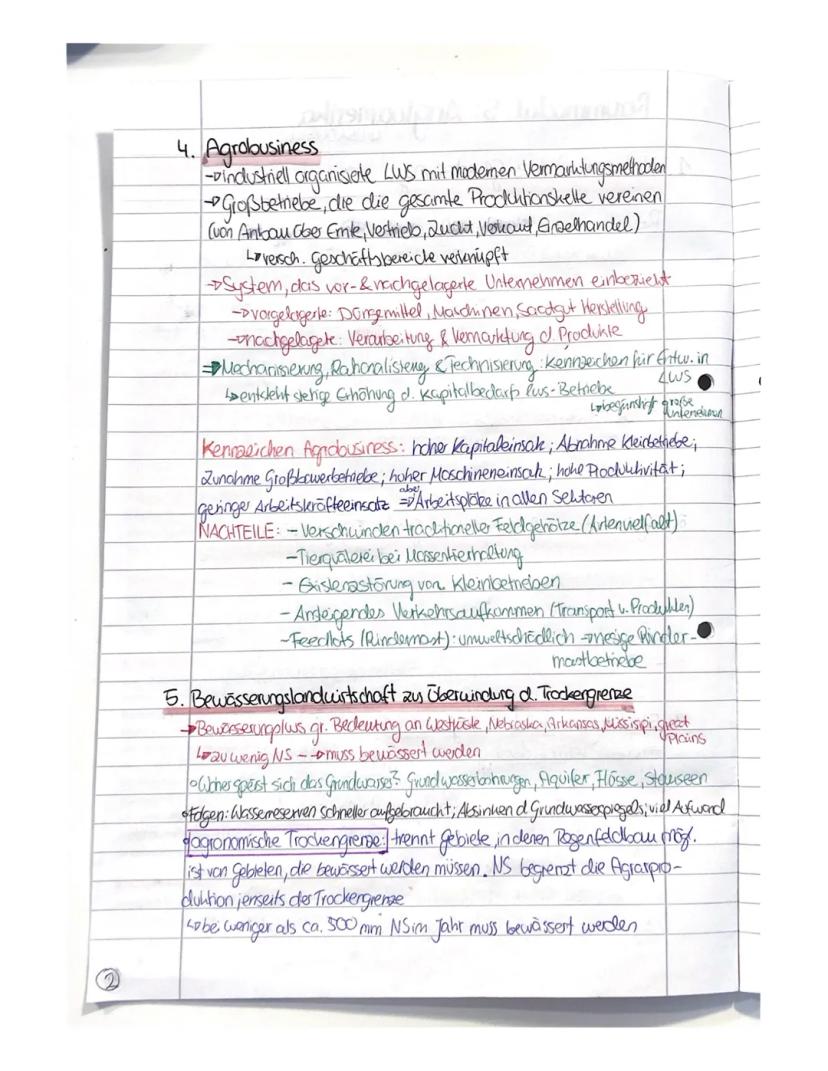 4. Agrobusiness
→ industriell organisierte LWS mit modernen Vermarktungsmethoden
→ Großbetriebe, die die gesamte Produktionskette vereinen
(von Anbau über Ernte, Vertrieb, Zucht, Verkauf, Einzelhandel)
↳ versch. Geschäftsbereiche verknüpft
→ System, das vor- & nachgelagerte Unternehmen einbezieht
→ vorgelagerte: Düngemittel, Maschinen, Saatgut Herstellung
→ nachgelagerte: Verarbeitung & Vermarktung d. Produkte
⇒ Mechanisierung, Rationalisierung & Technisierung: Kennzeichen für Entw. in LWS
↳ entsteht stetige Erhöhung d. Kapitalbedarfs lws-Betriebe
↳ begünstigt große Unternehmen
Kennzeichen Agrobusiness: hoher Kapitaleinsatz; Abnahme Kleinbetriebe;
Zunahme Großbauerbetriebe; hoher Maschineneinsatz; hohe Produktivität;
geringer Arbeitskräfteeinsatz aber ⇒ Arbeitsplätze in allen Sektoren
NACHTEILE: - Verschwinden traditioneller Feldgehölze (Artenvielfalt)
- Tierquälerei bei Massentierhaltung
- Existenzstörung von Kleinbetrieben
- Ansteigendes Verkehrsaufkommen (Transport v. Produkten)
- Feedlots (Rindermast): umweltschädlich → riesige Rinder-
mastbetriebe
5. Bewässerungslandwirtschaft zus Überwindung d. Trockengrenze
→ Bewässerungslws gr. Bedeutung an Westküste, Nebraska, Arkansas, Missisipi, great Plains
↳ zu wenig NS --→ muss bewässert werden
∘ Woher speist sich das Grundwasser? Grundwasserbohrungen, Aquifer, Flüsse, Stauseen
∘ Folgen: Wasserreserven schneller aufgebraucht; Absinken d Grundwasserspiegels; viel Aufwand
∘ agronomische Trockengrenze: trennt Gebiete, in denen Regenfeldbau mögl.
ist von Gebieten, die bewässert werden müssen. NS begrenzt die Agrarpro-
duktion jenseits der Trockengrenze
↳ bei weniger als ca. 500 mm NS im Jahr muss bewässert werden
2